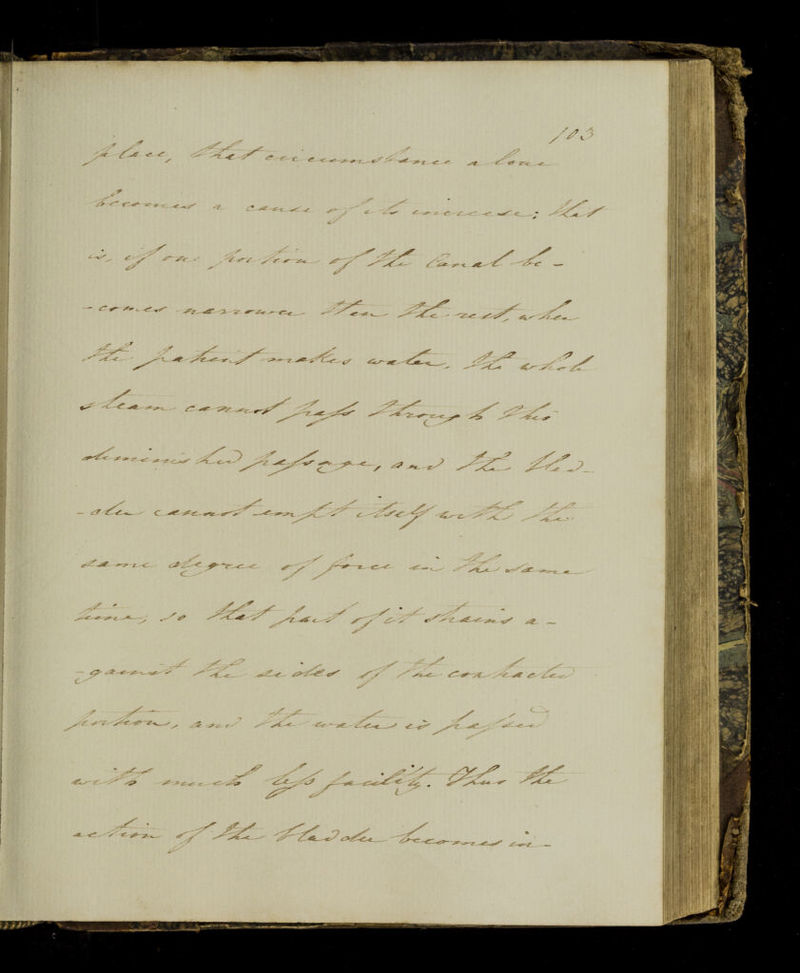 103
place, that circumstance alone
becomes a cause of its increase; that
is, if one portion of the Canal be-
-comes narrower then the rest, when
the patient makes water, the whole
steam cannot pass through this
deminished passage, and the blad-
-der cannot empt itself with the
same degree of force in the same
time, so that part of it strains a-
-gainst the sides of the contracted
portion, and the water is passed
with much less facility. Thus the
action of the bladder becomes in-